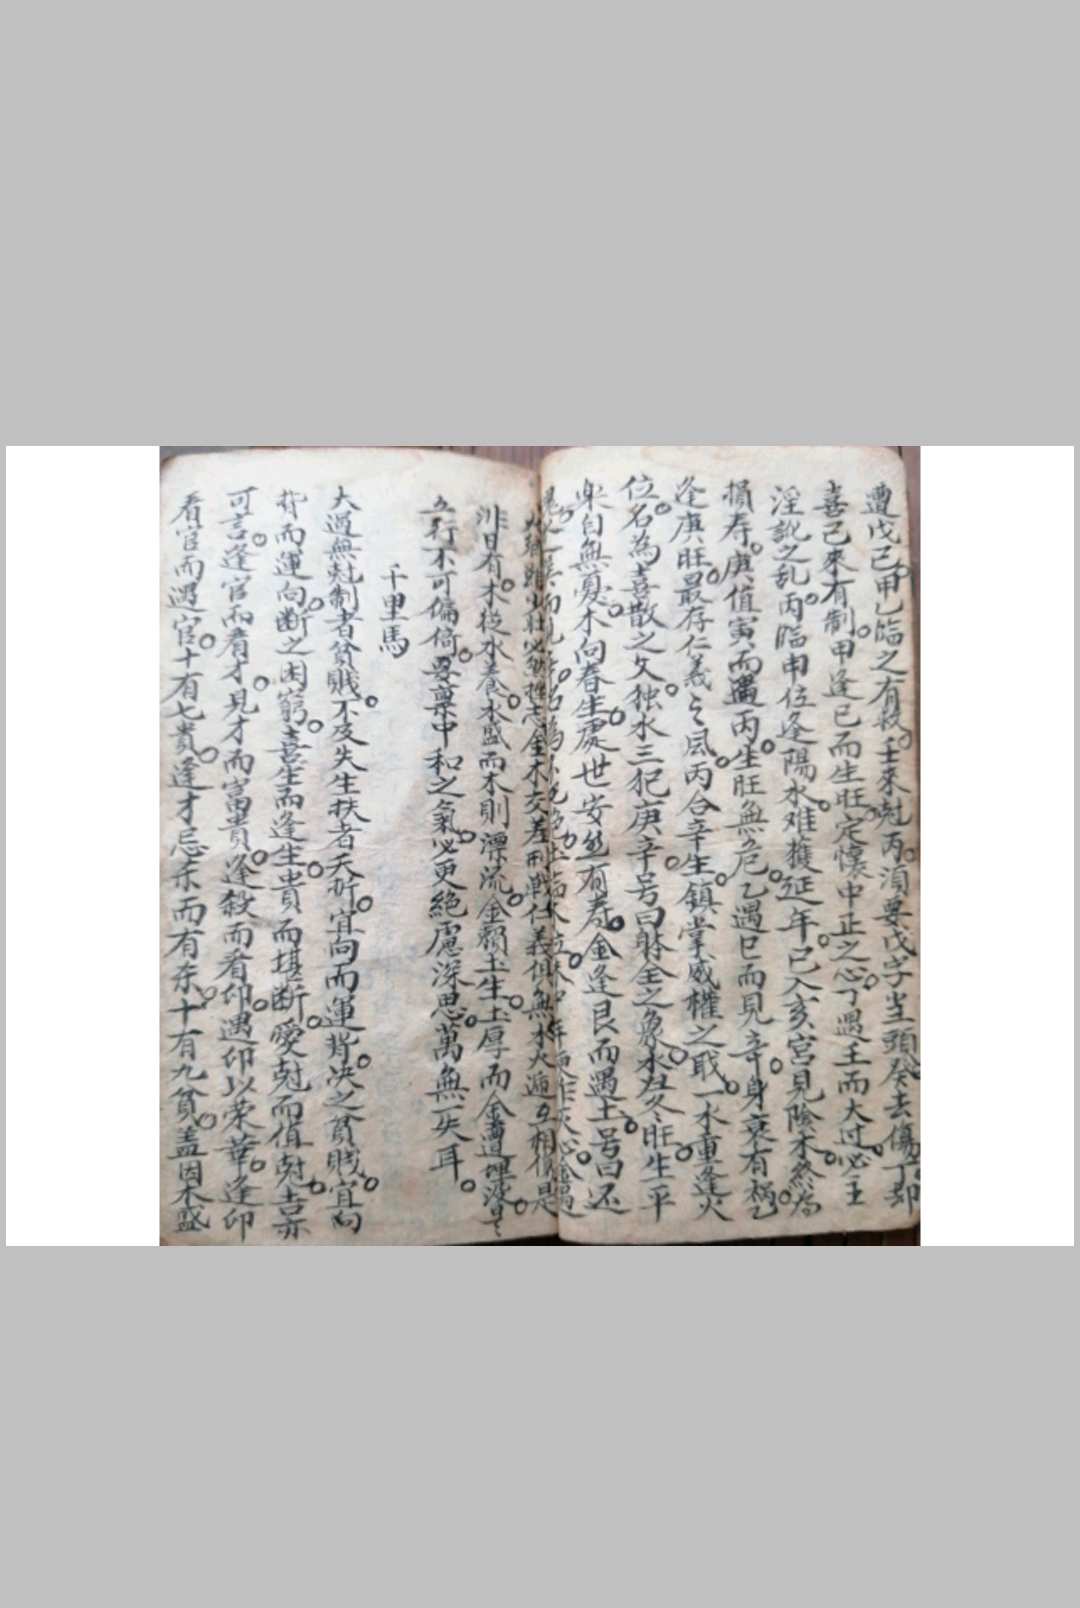 遭戊己甲乙臨之有救壬來尅丙須要戊字当頭癸去傷丁却
喜己來有制甲逢己而生旺定懷中正之心丁遇壬而大过必主
淫訛之乱丙臨申位逢陽水难獲延年己入亥宮見陰木終為
損寿庚值寅而遇丙生旺無危乙遇巳而見辛身衰有禍乙
逢庚旺最存仁義之風丙合辛生鎮掌威權之职一木重逢火
位名為气散之文独水三犯庚辛号曰体全之象水冬旺生平
樂自無憂木向春生處世安然有寿金逢艮而遇土号曰还
北辰 必然 志金木交差刑戰仁義俱無水火遁互相傷是
非日有木從水養水盛而木則漂流金賴土生土厚而金遭埋没是
五行不可偏倚要稟中和之氣必更絕慮深思萬無一失耳
千里馬
大過無尅制者貧賤不及失生扶者夭折宜向而運背决之貧賤宜向
背而運向断之困窮喜生而逢生貴而堪断愛尅而值尅吉亦
可言逢官而看才見才而富貴逢殺而看印遇印以荣華逢印
看官而遇官十有七貴逢才忌杀而有杀十有九貧盖因木盛